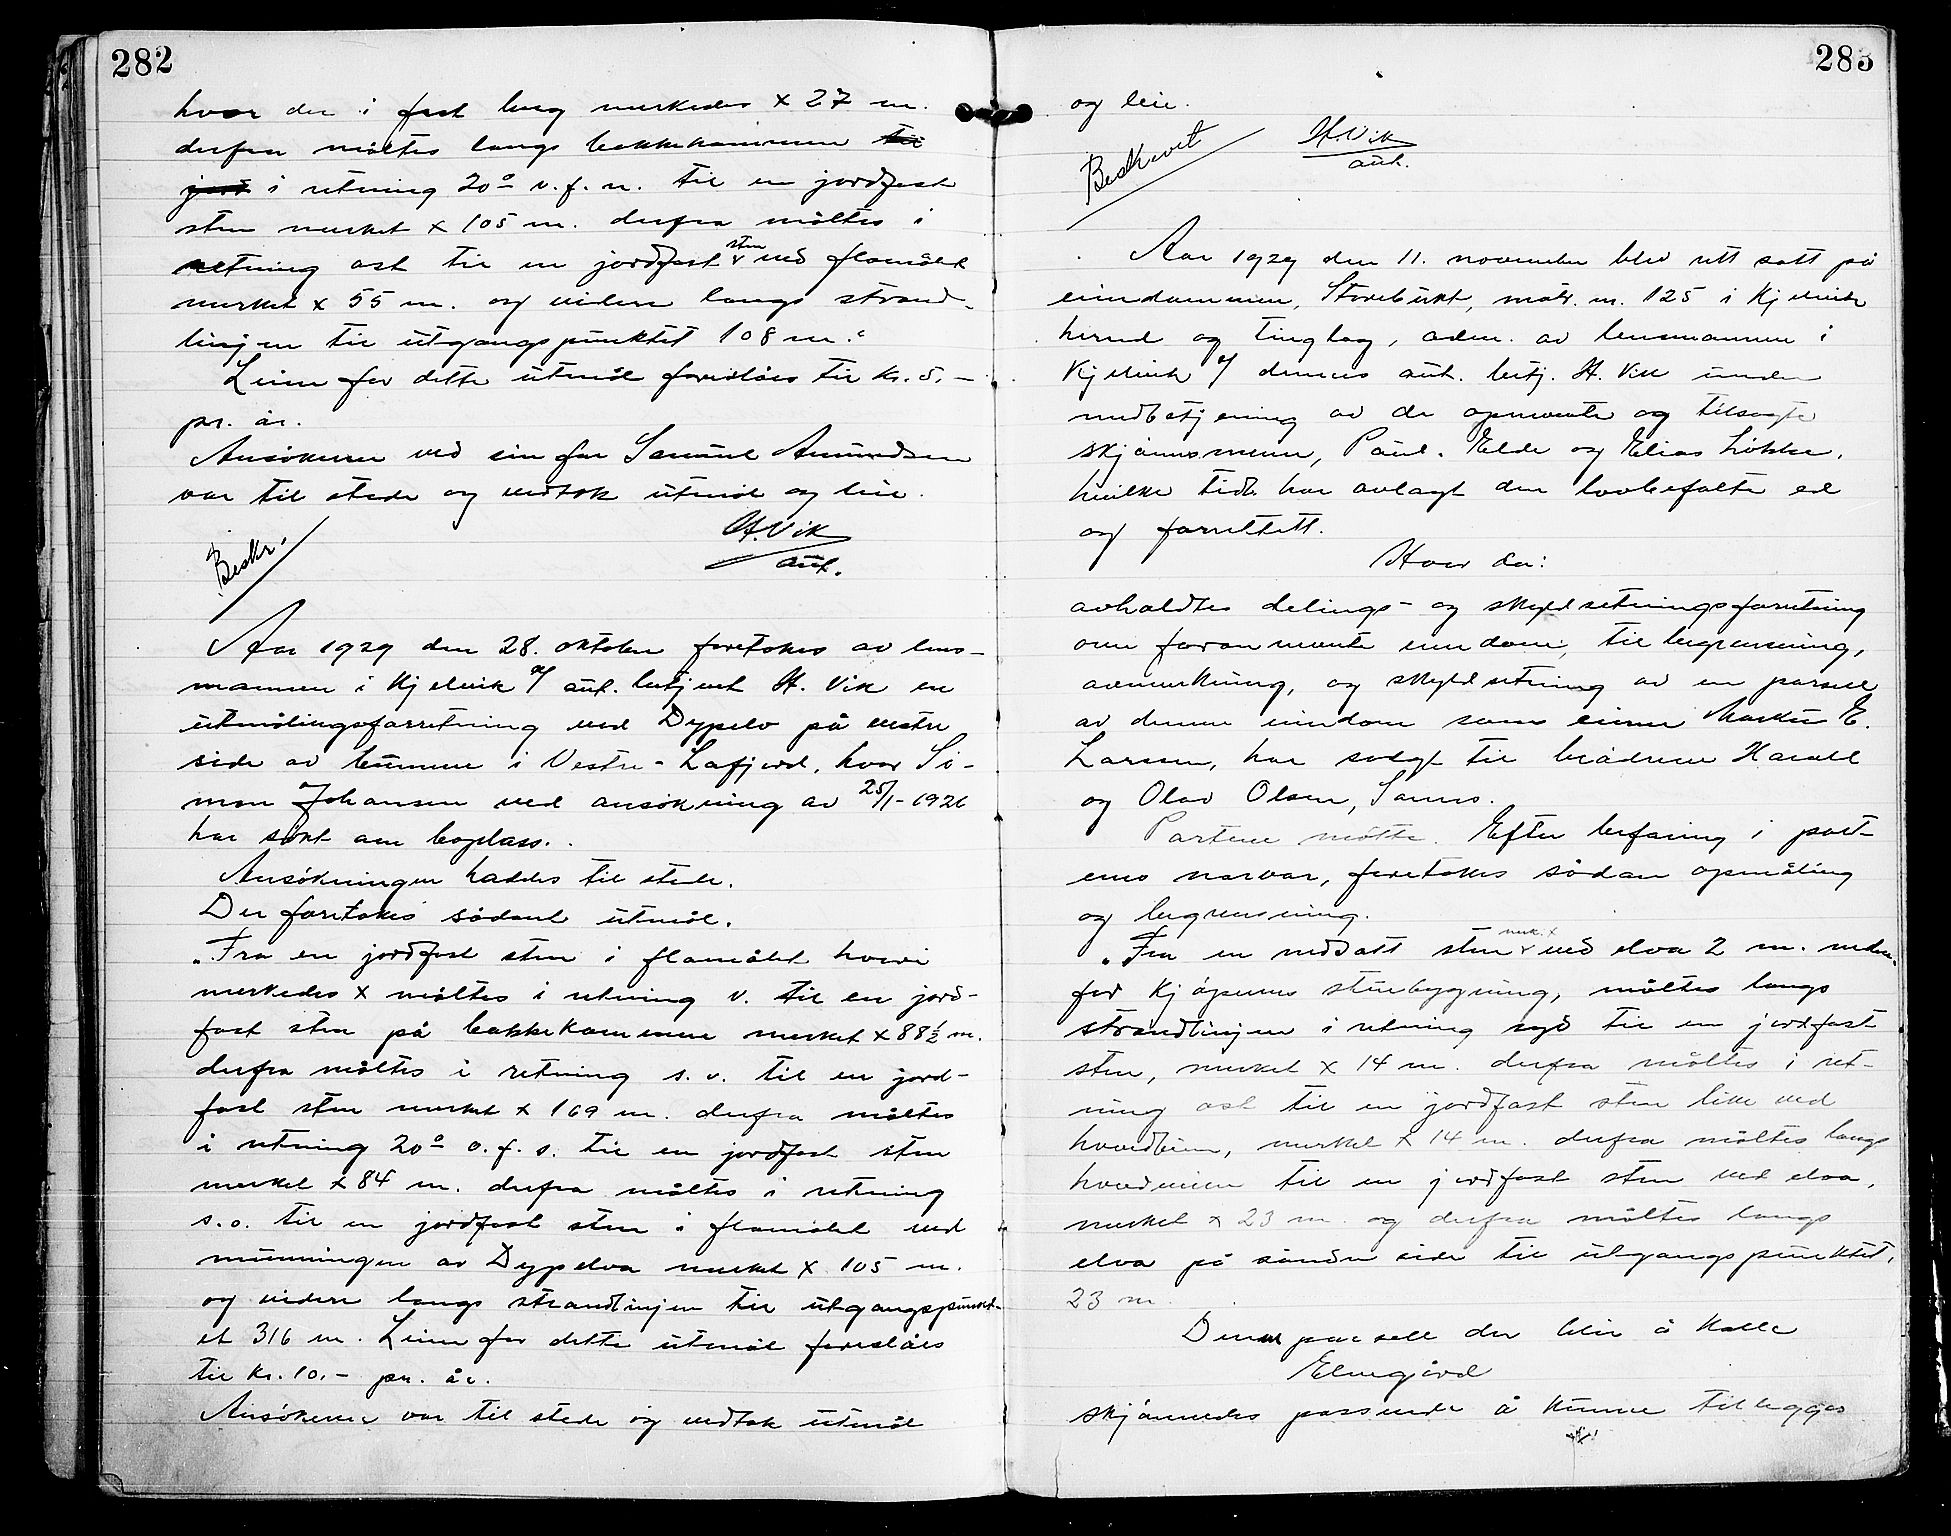 282
hvor der i fast berg merkedes x 27 m.
derfra måltes langs bakkekammen til
jord i retning 20° v.f.n. til en jordfast
sten merket x 105 m. derfra måltes i
retning ost til en jordfast sten ved flomålet
merket x 55 m. og videre langs strand-
linjen til utgangspunktet 108 m."
Leien for dette utmål foreslåes til kr. 5.-
pr. år.
Ansökeren ved sin far Samuel Amundsen
var til stede og vedtok utmål og leie.
Beskr.
H. Vik
aut.
Aar 1929 den 28. oktober foretokes av lens-
mannen i Kjelvik v/ aut. betjent H. Vik en
utmålingsforretning ved Dypelv på vestre
side av bunnen i Vestre-Lafjord, hvor Si-
mon Johansen ved ansökning av 25/1-1926
har sökt om boplass.
Ansökningen haddes til stede.
Der foretokes sådant utmål.
"Fra en jordfast sten i flomålet hvori
merkedes x måltes i retning v. til en jord-
fast sten på bakkekammen merket x 88½ m.
derfra måltes i retning s.v. til en jord-
fast sten merket x 169 m. derfra måltes
i retning 20° o.f.s. til en jordfast sten
merket x 84 m. derfra måltes i retning
s.o. til en jordfast sten i flomålet ved
munningen av Dypelva merket x 105 m.
og videre langs strandlinjen til utgangspunkt-
et 316 m. Leien for dette utmål foreslåes
til kr. 10.- pr. år.
Ansökeren var til stede og vedtok utmål
283
og leie.
Beskrevet
H. Vik
aut.
Aar 1929 den 11. november blev rett satt på
eiendommen, Storebukt, matr. nr. 125 i Kjelvik
herred og tinglag, adm. av lensmannen i
Kjelvik v/ dennes aut. betj. H. Vik under
medbetjening av de opnevnte og tilsagte
skjönnsmenn, Paul Elde og Elias Lökke,
hvilke tidl. har avlagt den lovbefalte ed
og forrettett.
Hvor da:
avholdtes delings- og skyldsetningsforretning
over forannevnte eiendom, til begrensning,
avmerkning, og skyldsetning av en parsell
av denne eiendom som eieren Markus E.
Larsen, har solgt til brödrene Harald
og Olav Olsen, Sarnes.
Partene mötte. Efter befaring i part-
enes nærvær, foretokes sådan opmåling
og begrensning.
"Fra en nedsatt sten merk. x ved elva 2 m. neden-
for kjöpernes stenbygning, måltes langs
strandlinjen i retning syd til en jordfast
sten, merket x 14 m. derfra måltes i ret-
ning ost til en jordfast sten like ved
hovedveien, merket x 14 m. derfra måltes langs
hovedveien til en jordfast sten ved elva,
merket x 23 m. og derfra måltes langs
elva på söndre side til utgangspunktet,
23 m.
Denne parsell der blir å kalle
Elvegård
skjönnedes passende å kunne tillegges